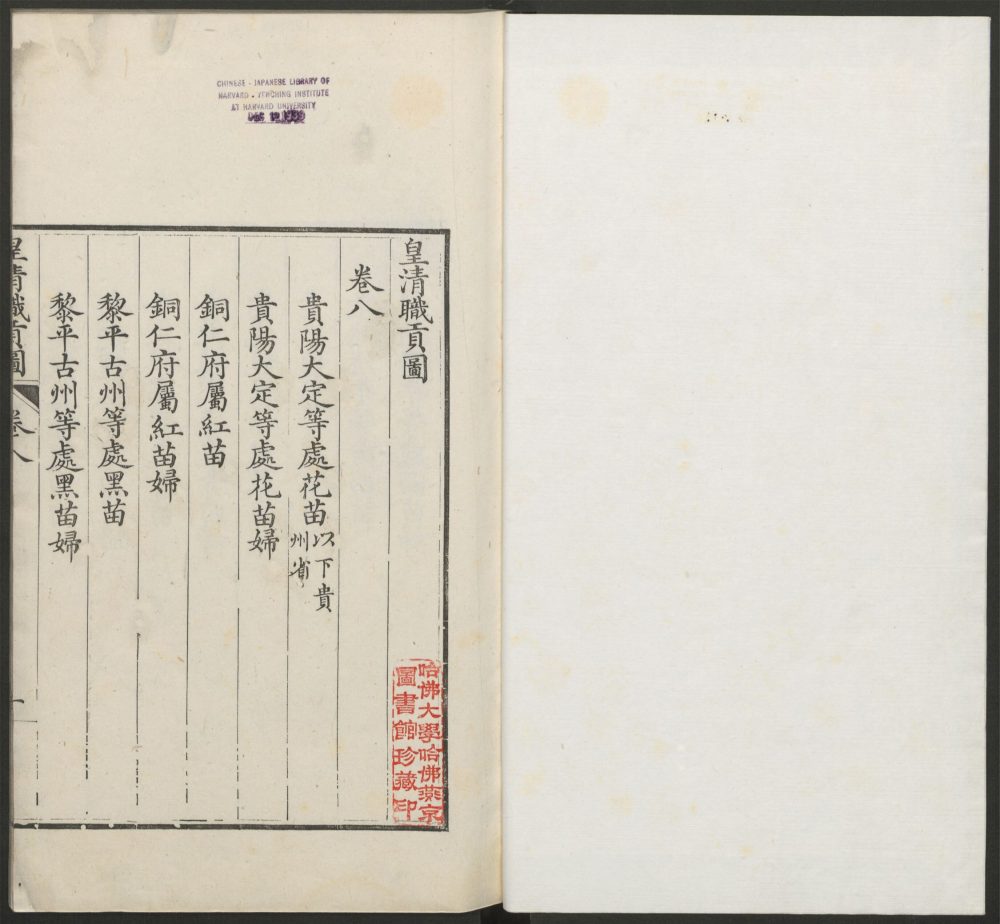 CHINESE - JAPANESE LIBRARY OF
HARVARD - YENCHING INSTITUTE
AT HARVARD UNIVERSITY
DEC 12
皇清職貢圖
卷八
貴陽大定等處花苗以下貴州省
貴陽大定等處花苗婦
銅仁府屬紅苗
銅仁府屬紅苗婦
黎平古州等處黑苗
黎平古州等處黑苗婦
皇清職貢圖 卷八 一
哈佛大學哈佛燕京
圖書館珍藏印